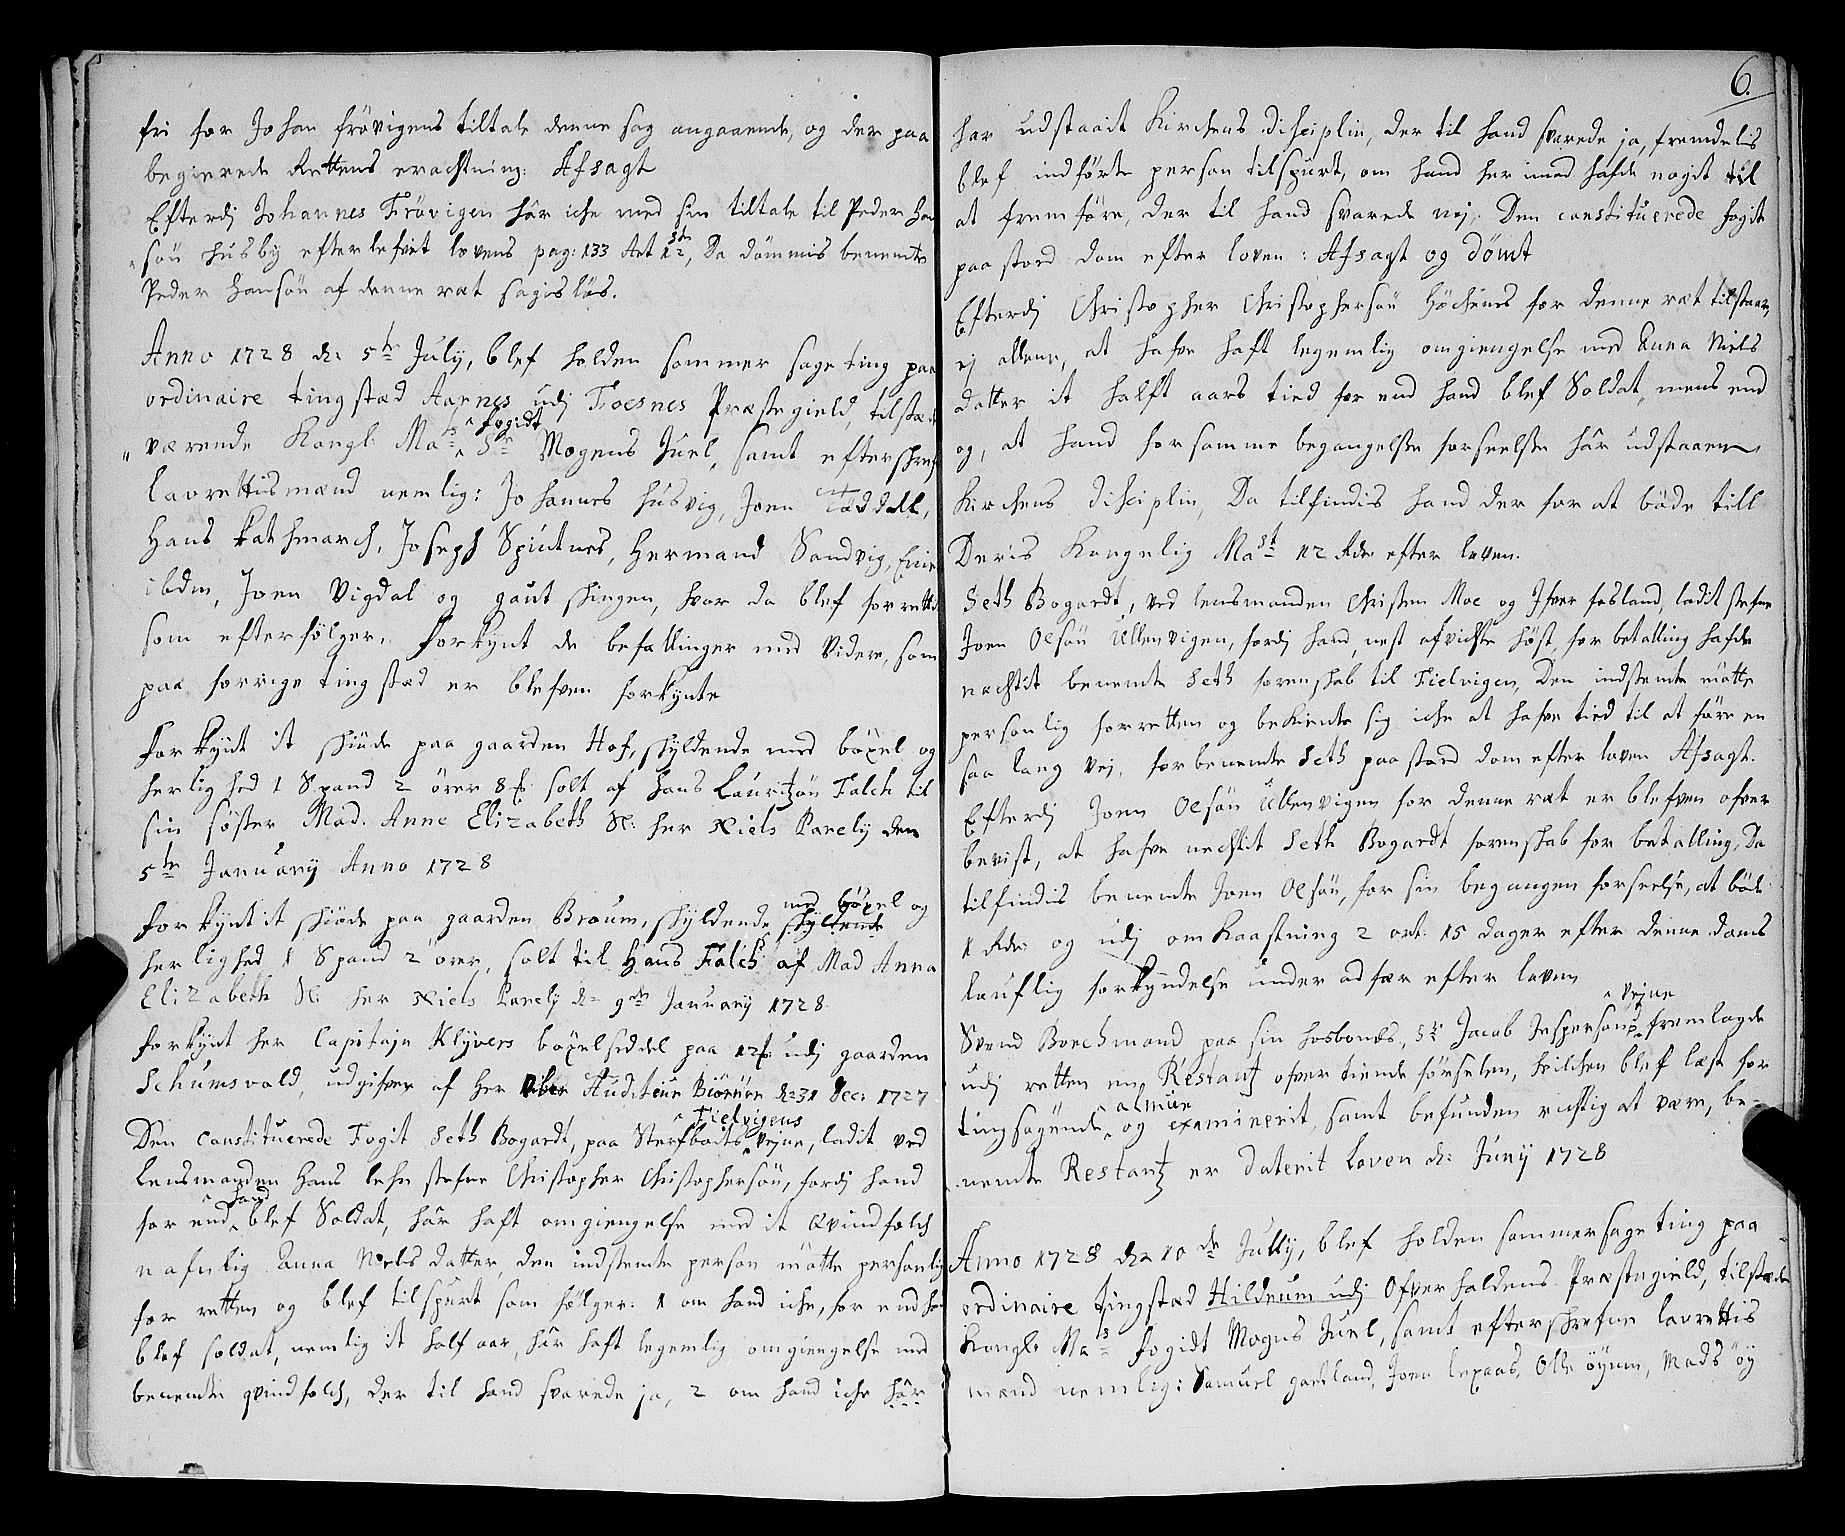 fri for Johan frövigens tiltale denne sag angaaende, og der paa
begierede Rettens eragtning: Afsagt
Efterdj Johannes Frövigen här iche med sin tiltale til Peder Han
söu husby efterlefvet lovens pag: 133 Art 12, Da dömmis benemte
Peder Hansön af denne ræt sagislös.
Anno 1728 d: 5te July, blef holden sommer sage ting paa
ordinaire tingstæd Aarnes udj Foesnes Præstegield, tilstæde
værende Kongl: Mats fogidt Sr Mogens Juel, samt efterskrefne
lavrettismænd nemlig: Johannes husvig, Joen Tæddall,
Hans Kathmarch, Joseph Spiutnes, Hermand Sandvig,
ibdm, Joen Vigdal og gaut skingen, hvor da blef forrettet
som efterfölger. Forkynt de befallinger med videre, som
paa forrige tingstæd er blefven forkynte
Forkynt it skiöde paa gaarden Hof, skyldende med böxel og
herlighed 1 Spand 2 örer 8 solt af Hans Lauritzön Falch til
sin söster Mad. Anne Elizabeth Sl: her Niels Parely den
5te January Anno 1728
med böxel og
Forkynt it skiöde paa gaarden Broum, skyldende skyldende
herlighed 1 Spand 2 örer, solt til Hans Falch af Mad Anna
Elizabeth Sl: her Niels Parely d= 9de January 1728
Forkynt her Capitajn Klyvers böxelseddel paa 12 udj gaarden
Schumsvold, udgifven af Her Auditeur Biörnör d: 31 Dec: 1727
Fielvigens
Den Constituerede Fogit Seth Bogardt, paa Sterfboets vejne, ladit ved
Lensmanden Hans lehn stefne Christopher Christophersön, fordj hand
hand
for end blef Soldat, här haft omgiengelse med it Qvindfolch
nafnlig Anna Nielsdatter, den indstemte person mötte personlig
for retten og blef tilspurt som fölger: 1 om hand iche, for end han
blef soldat, nemlig it half aar, här haft legemlig omgiengelse med
benemte qvindfolch, der til hand svarede ja, 2 om hand iche här
6.
har udstaait Kirchens disciplin, der til hand svarede ja, fremdelis
blef indförte person tilspurt, om hand her imod hafde nogit til
at fremföre, der til hand svarede nej. Den constituerede fogit
paastod dom efter loven: Afsagt og dömt
Efterdj Christopher Christophersön Höchnes for denne ræt tilstaar,
ej allene, at hafve haft legemlig omgiengelse med Anna Niels
datter it halft aars tied for end hand blef Soldat, mens end
og, at hand for samme begangelse forseelse här udstaaen
Kirchens disciplin, Da tilfindis hand der for at böde till
Deris Kongelig Mast 12 Rdr efter loven.
Seth Bogardt, ved lensmanden Christen Moe og Ifver fosland, ladit stefne
Joen Olsön Ullenvigen, fordj hand, nest afvichte höst, for betalling hafde
nechtit benemte Seth forenskab til Fielvigen, Den indstemte mötte
personlig for retten og bekiente sig iche at hafve tied til at före en
saa lang vej, for benemte Seth paastod dom efter loven Afsagt.
Efterdj Joen Olsön Ullenvigen for denne ræt er blefven ofver
bevist, at hafve nechtit Seth Bogardt forenskab for betalling, Da
tilfindis benemte Joen Olsön, for sin begangen forseelse, at böde
1 Rdr og udj omkaastning 2 ort. 15 dager efter denne doms
lauflig forkyndelse under adfær efter loven
vejne
Svend Borchmand paa sin hosbonds, Sr Jacob Jespersöns fremlagde
udj retten en Restantz ofver tiende förselen, hvilchen blef læst for
almue
tingsögende og examinerit, samt befunden rigtig at være, be-
nemte Restantz er daterit Loven d: Juny 1728
Anno 1728 d= 10de Jully, blef holden sommersageting paa
ordinaire tingstæd Hildrum udj Ofverhaldens Præstegield, tilstæde
Kongl: Mats fogidt Mogns Juel, samt efterskrefne lavrettis
mænd nemlig: Samuel gaedland, Joen lexaas, Olle öyum, Mads öy